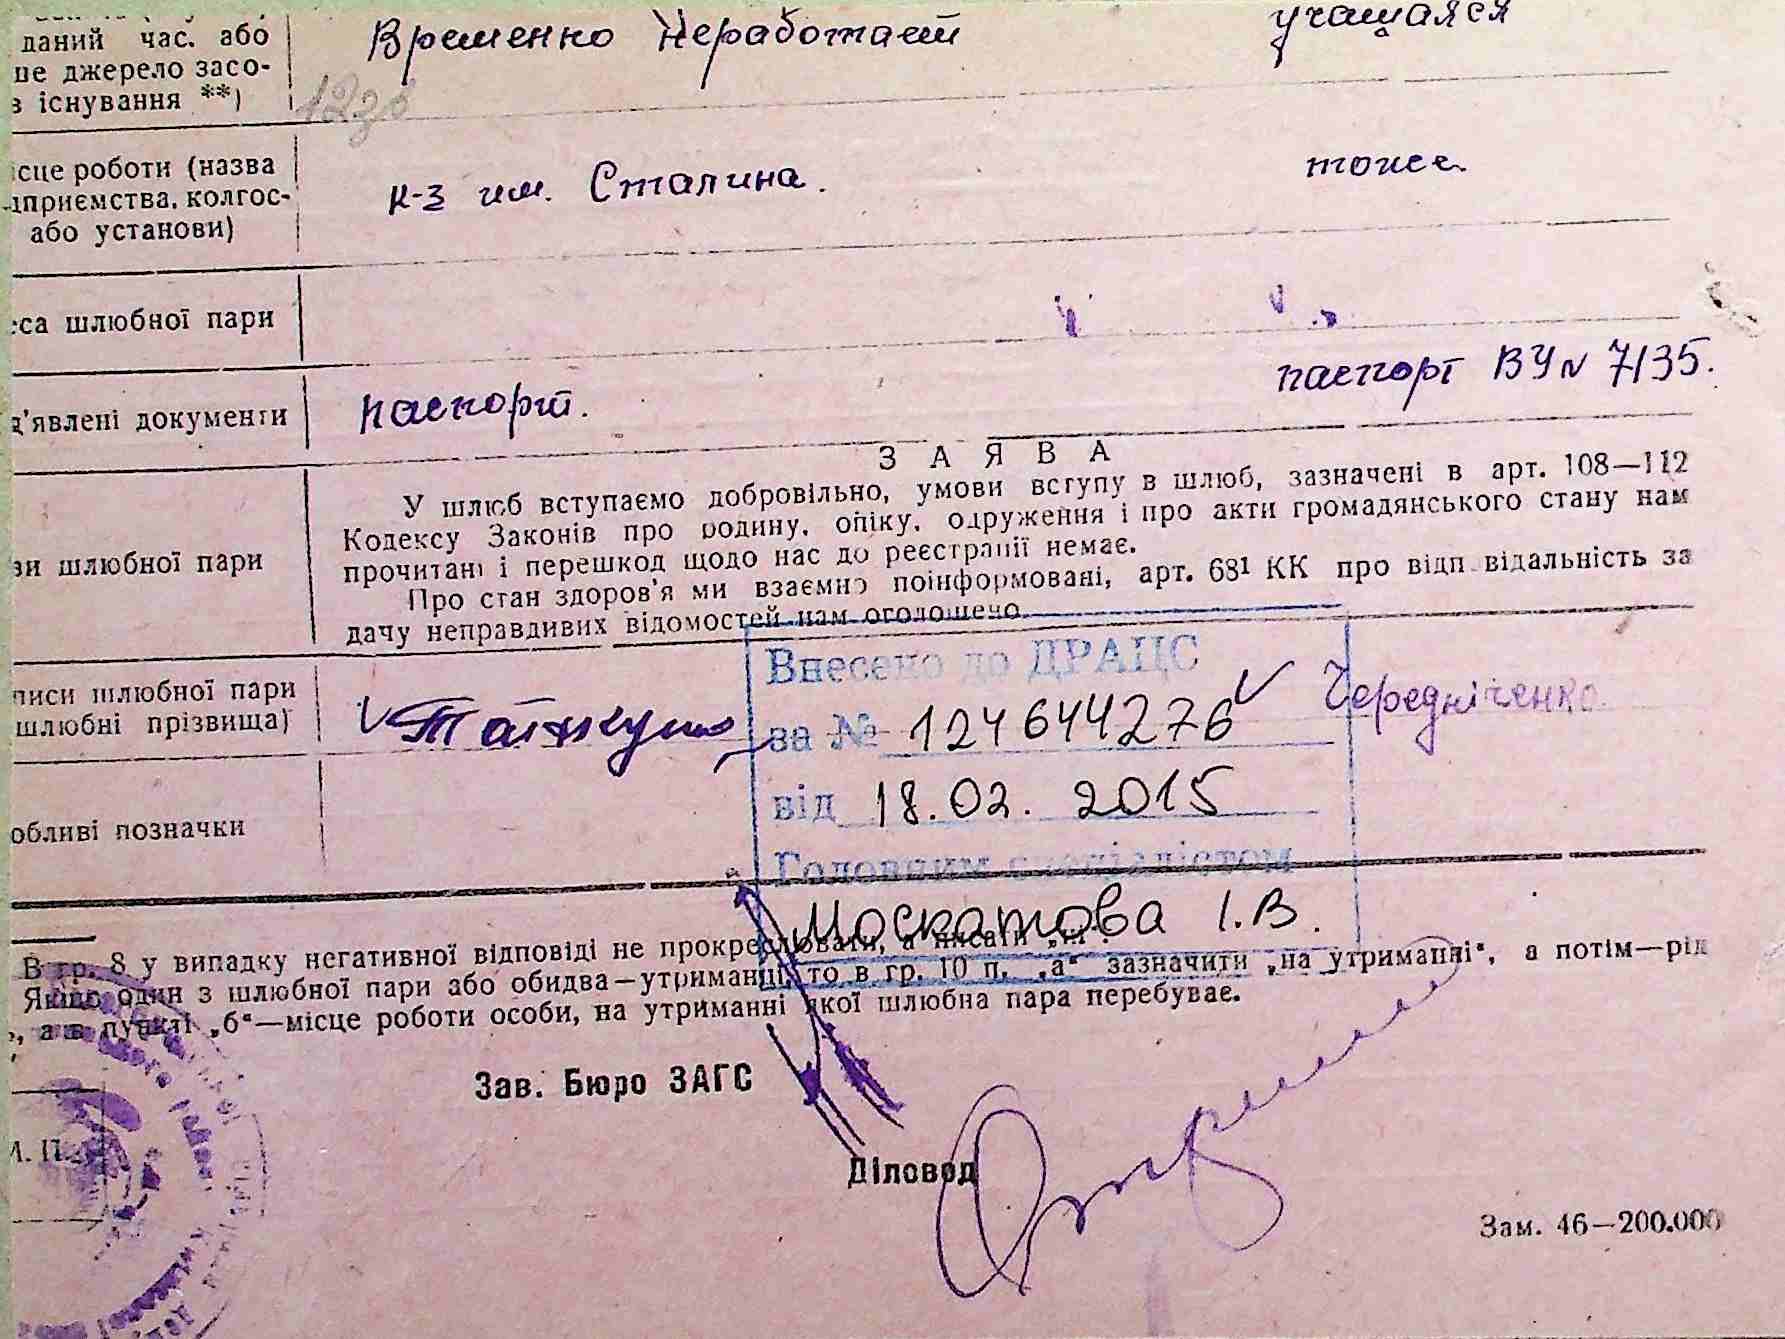 даний час. або Временно Неработает учащаяся
ше джерело засо-
в існування **)
ісце роботи (назва тоже.
дприємства, колгос- к-з им. Сталина.
або установи)
еса шлюбної пари
д'явлені документи паспорт. паспорт ВУ№ 7135.
ЗАЯВА
У шлюб вступаємо добровільно, умови вступу в шлюб, зазначені в арт. 108—112
Кодексу Законів про родину, опіку, одруження і про акти громадянського стану нам
прочитані і перешкод щодо нас до реєстрації немає.
ви шлюбної пари
Про стан здоров'я ми взаємно поінформовані, арт. 68¹ КК про відповідальність за
дачу неправдивих відомостей нам оголошено.
Внесено до ДРАЦС
писи шлюбної пари Чередніченко
шлюбні прізвища)
за № 124644276
від 18.02.2015
обливі позначки
Головним спеціалістом
Москатова І.В.
В гр. 8 у випадку негативної відповіді не прокреслювати, а писати „ні".
Якщо один з шлюбної пари або обидва—утриманці, то в гр. 10 п. „а" зазначити „на утриманні", а потім—рід
, а в пункті „б"—місце роботи особи, на утриманні якої шлюбна пара перебуває.
Зав. Бюро ЗАГС
М. П.
Діловод
Зам. 46—200.000